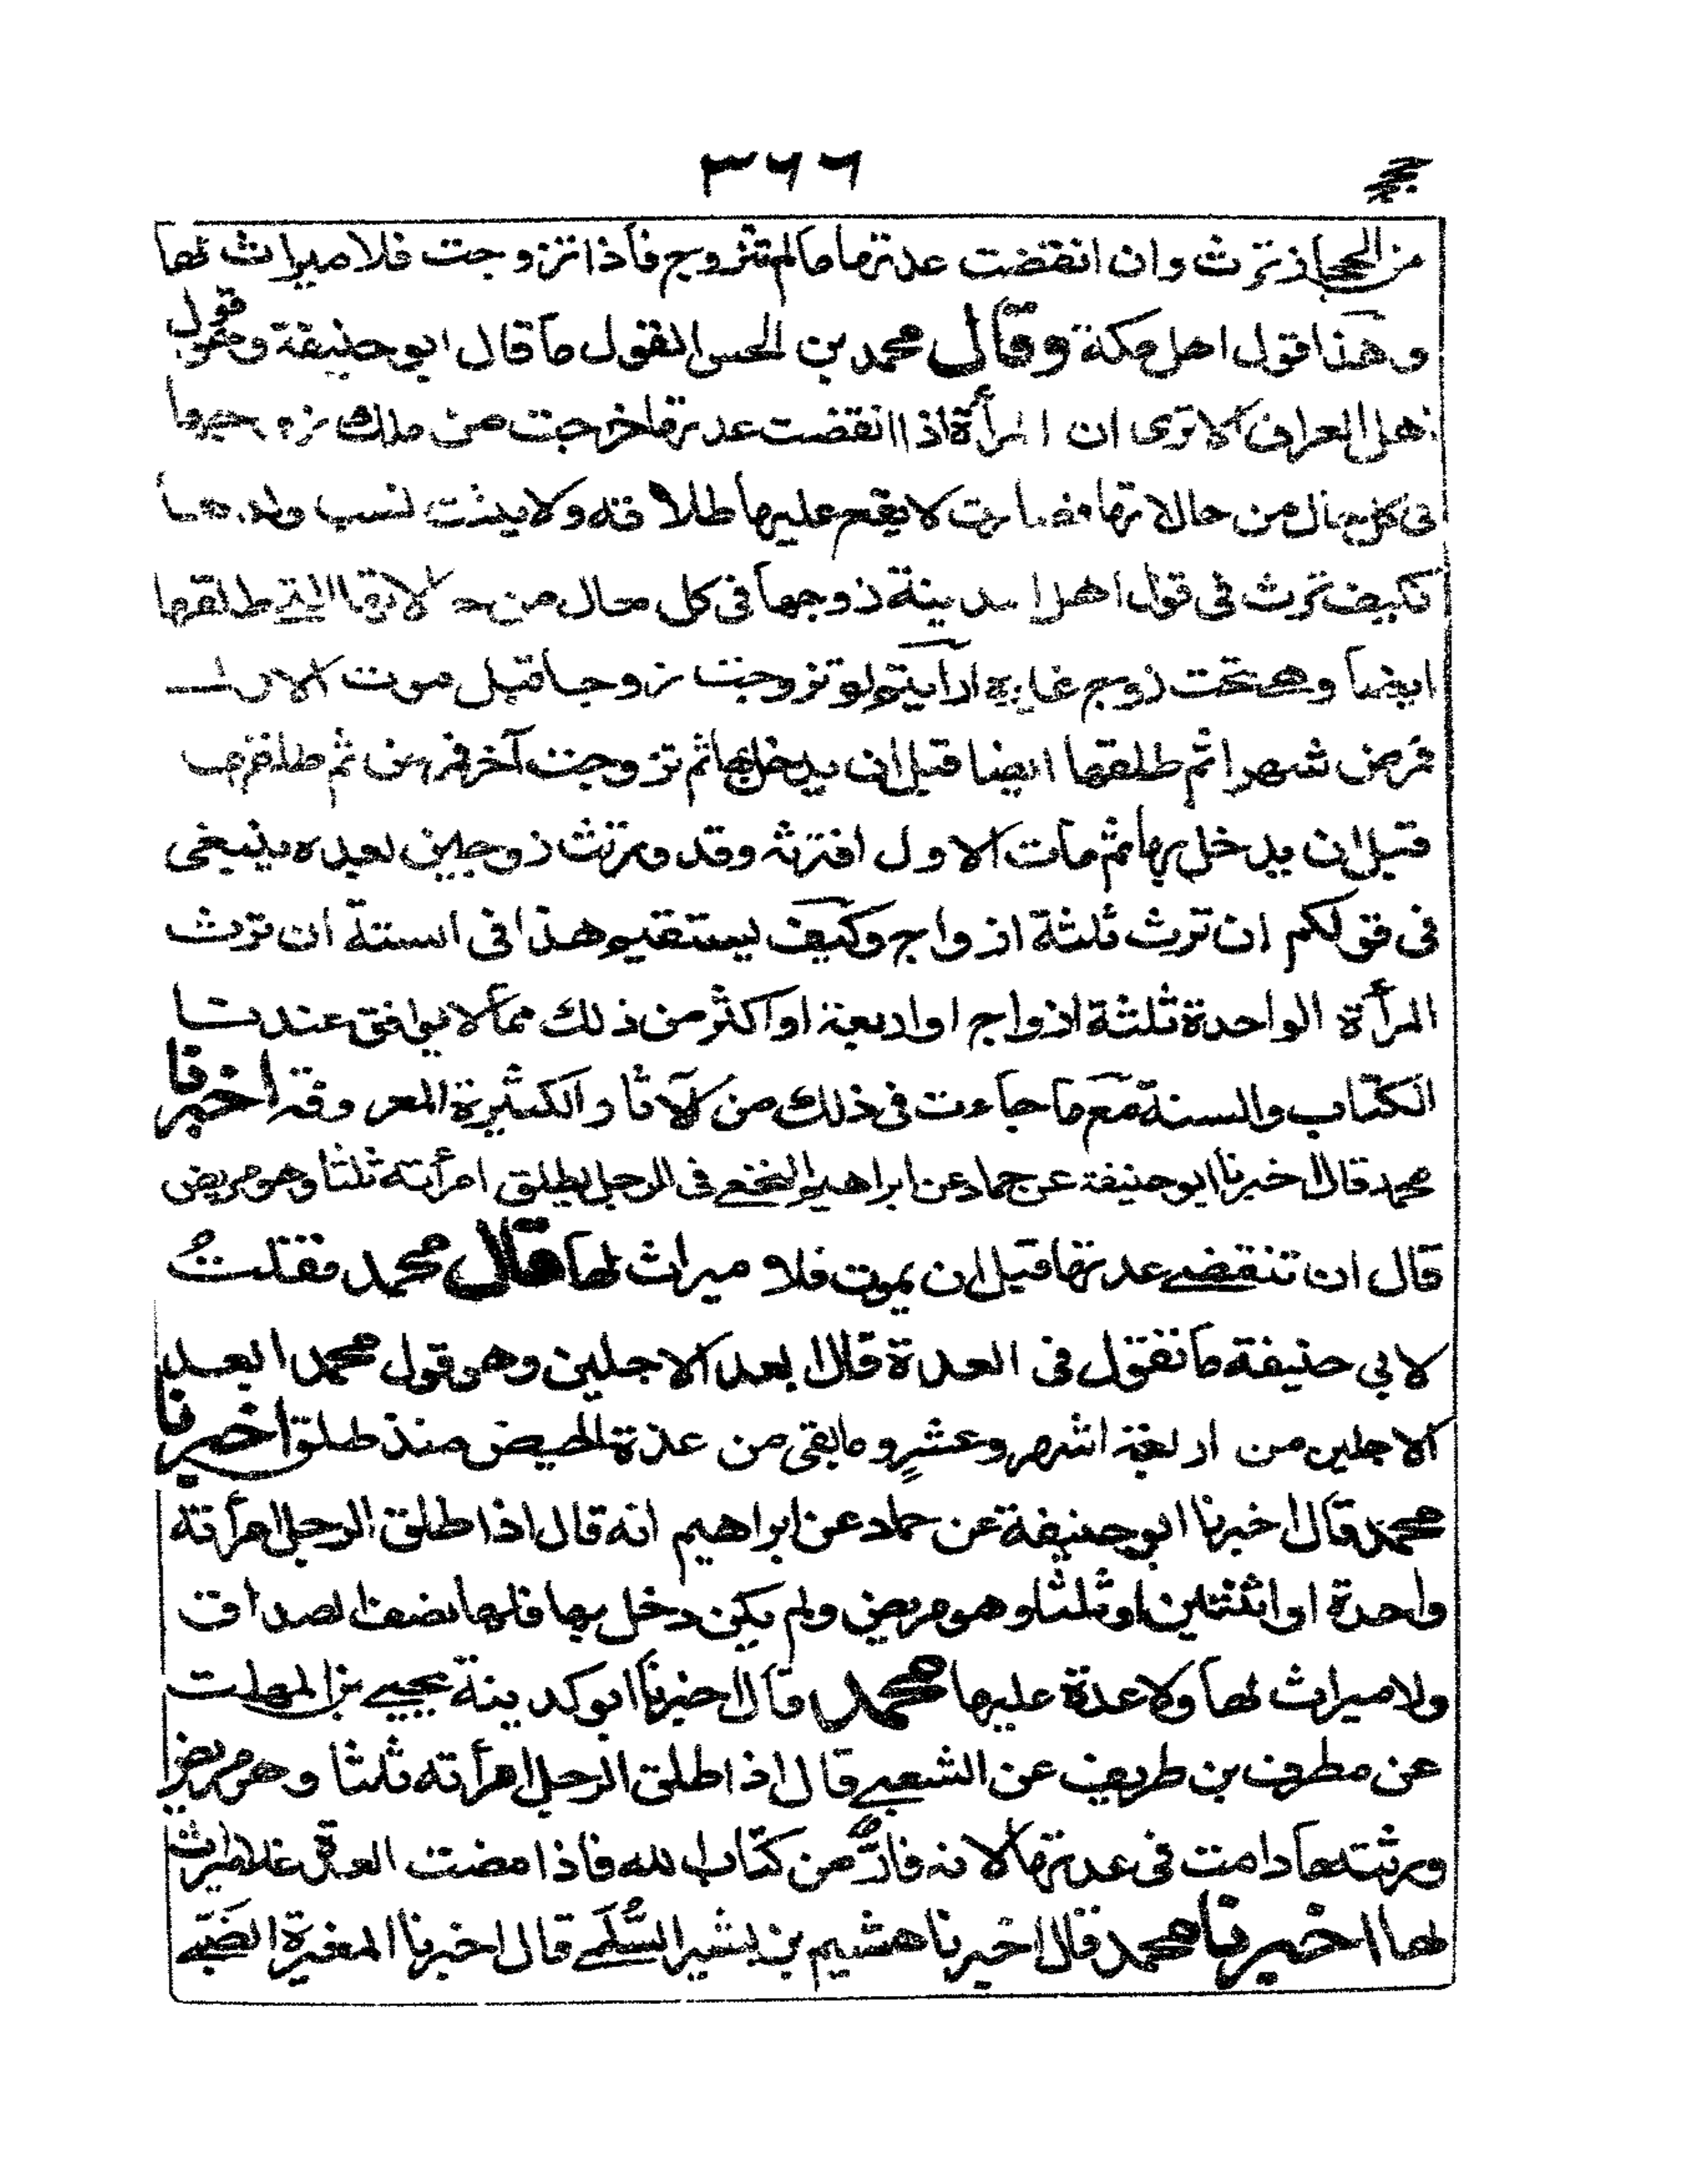 ٣٦٦
من الحجاز ترث وان انقضت عدتها مالم تتزوج فاذا تزوجت فلا ميراث لها
وهذا قول اهل مكة وقال محمد بن الحسن القول ما قال ابو حنيفة وهو قول
اهل العراق الا ترى ان المرأة اذا انقضت عدتها خرجت من ملك زوجها
فى كل حال من حالاتها فصارت لا يقع عليها طلاقه ولا يثبت نسب ولدها
فكيف ترث فى قول اهل المدينة زوجها فى كل حال من حالاتها التى طلقها
ايضا وهى تحت زوج غيره ارأيتم لو تزوجت زوجا قبل موت الاول
فمرض شهرا ثم طلقها ايضا قبل ان يدخل بها ثم تزوجت آخر فمرض ثم طلقها
قبل ان يدخل بها ثم مات الاول افترثه وقد ورثت زوجين بعده ينبغى
فى قولكم ان ترث ثلثة ازواج وكيف يستقيم هذا فى السنة ان ترث
المرأة الواحدة ثلثة ازواج او اربعة او اكثر من ذلك مما لا يوافق عندنا
الكتاب والسنة مع ما جاءت فى ذلك من الآثار الكثيرة المعروفة اخبرنا
محمد قال اخبرنا ابو حنيفة عن حماد عن ابراهيم النخعى فى الرجل يطلق امرأته ثلثا وهو مريض
قال ان تنقضى عدتها قبل ان يموت فلا ميراث لها قال محمد فقلتُ
لابي حنيفة ما تقول فى العدة قال ابعد الاجلين وهو قول محمد ابعد
الاجلين من اربعة اشهر وعشرٍ وما بقى من عدة الحيض منذ طلق اخبرنا
محمد قال اخبرنا ابو حنيفة عن حماد عن ابراهيم انه قال اذا طلق الرجل امرأته
واحدة او اثنتين او ثلثا وهو مريض ولم يكن دخل بها فلها نصف الصداق
ولا ميراث لها ولا عدة عليها محمد قال اخبرنا ابو كدينة يحيى بن المهلب
عن مطرف بن طريف عن الشعبى قال اذا طلق الرجل امرأته ثلثا وهو مريض
ورثته ما دامت فى عدتها لانه فارٌّ من كتاب الله فاذا مضت العدة فلا ميراث
لها اخبرنا محمد قال اخبرنا هشيم بن بشير السُّلَمى قال اخبرنا المغيرة الضَبّى